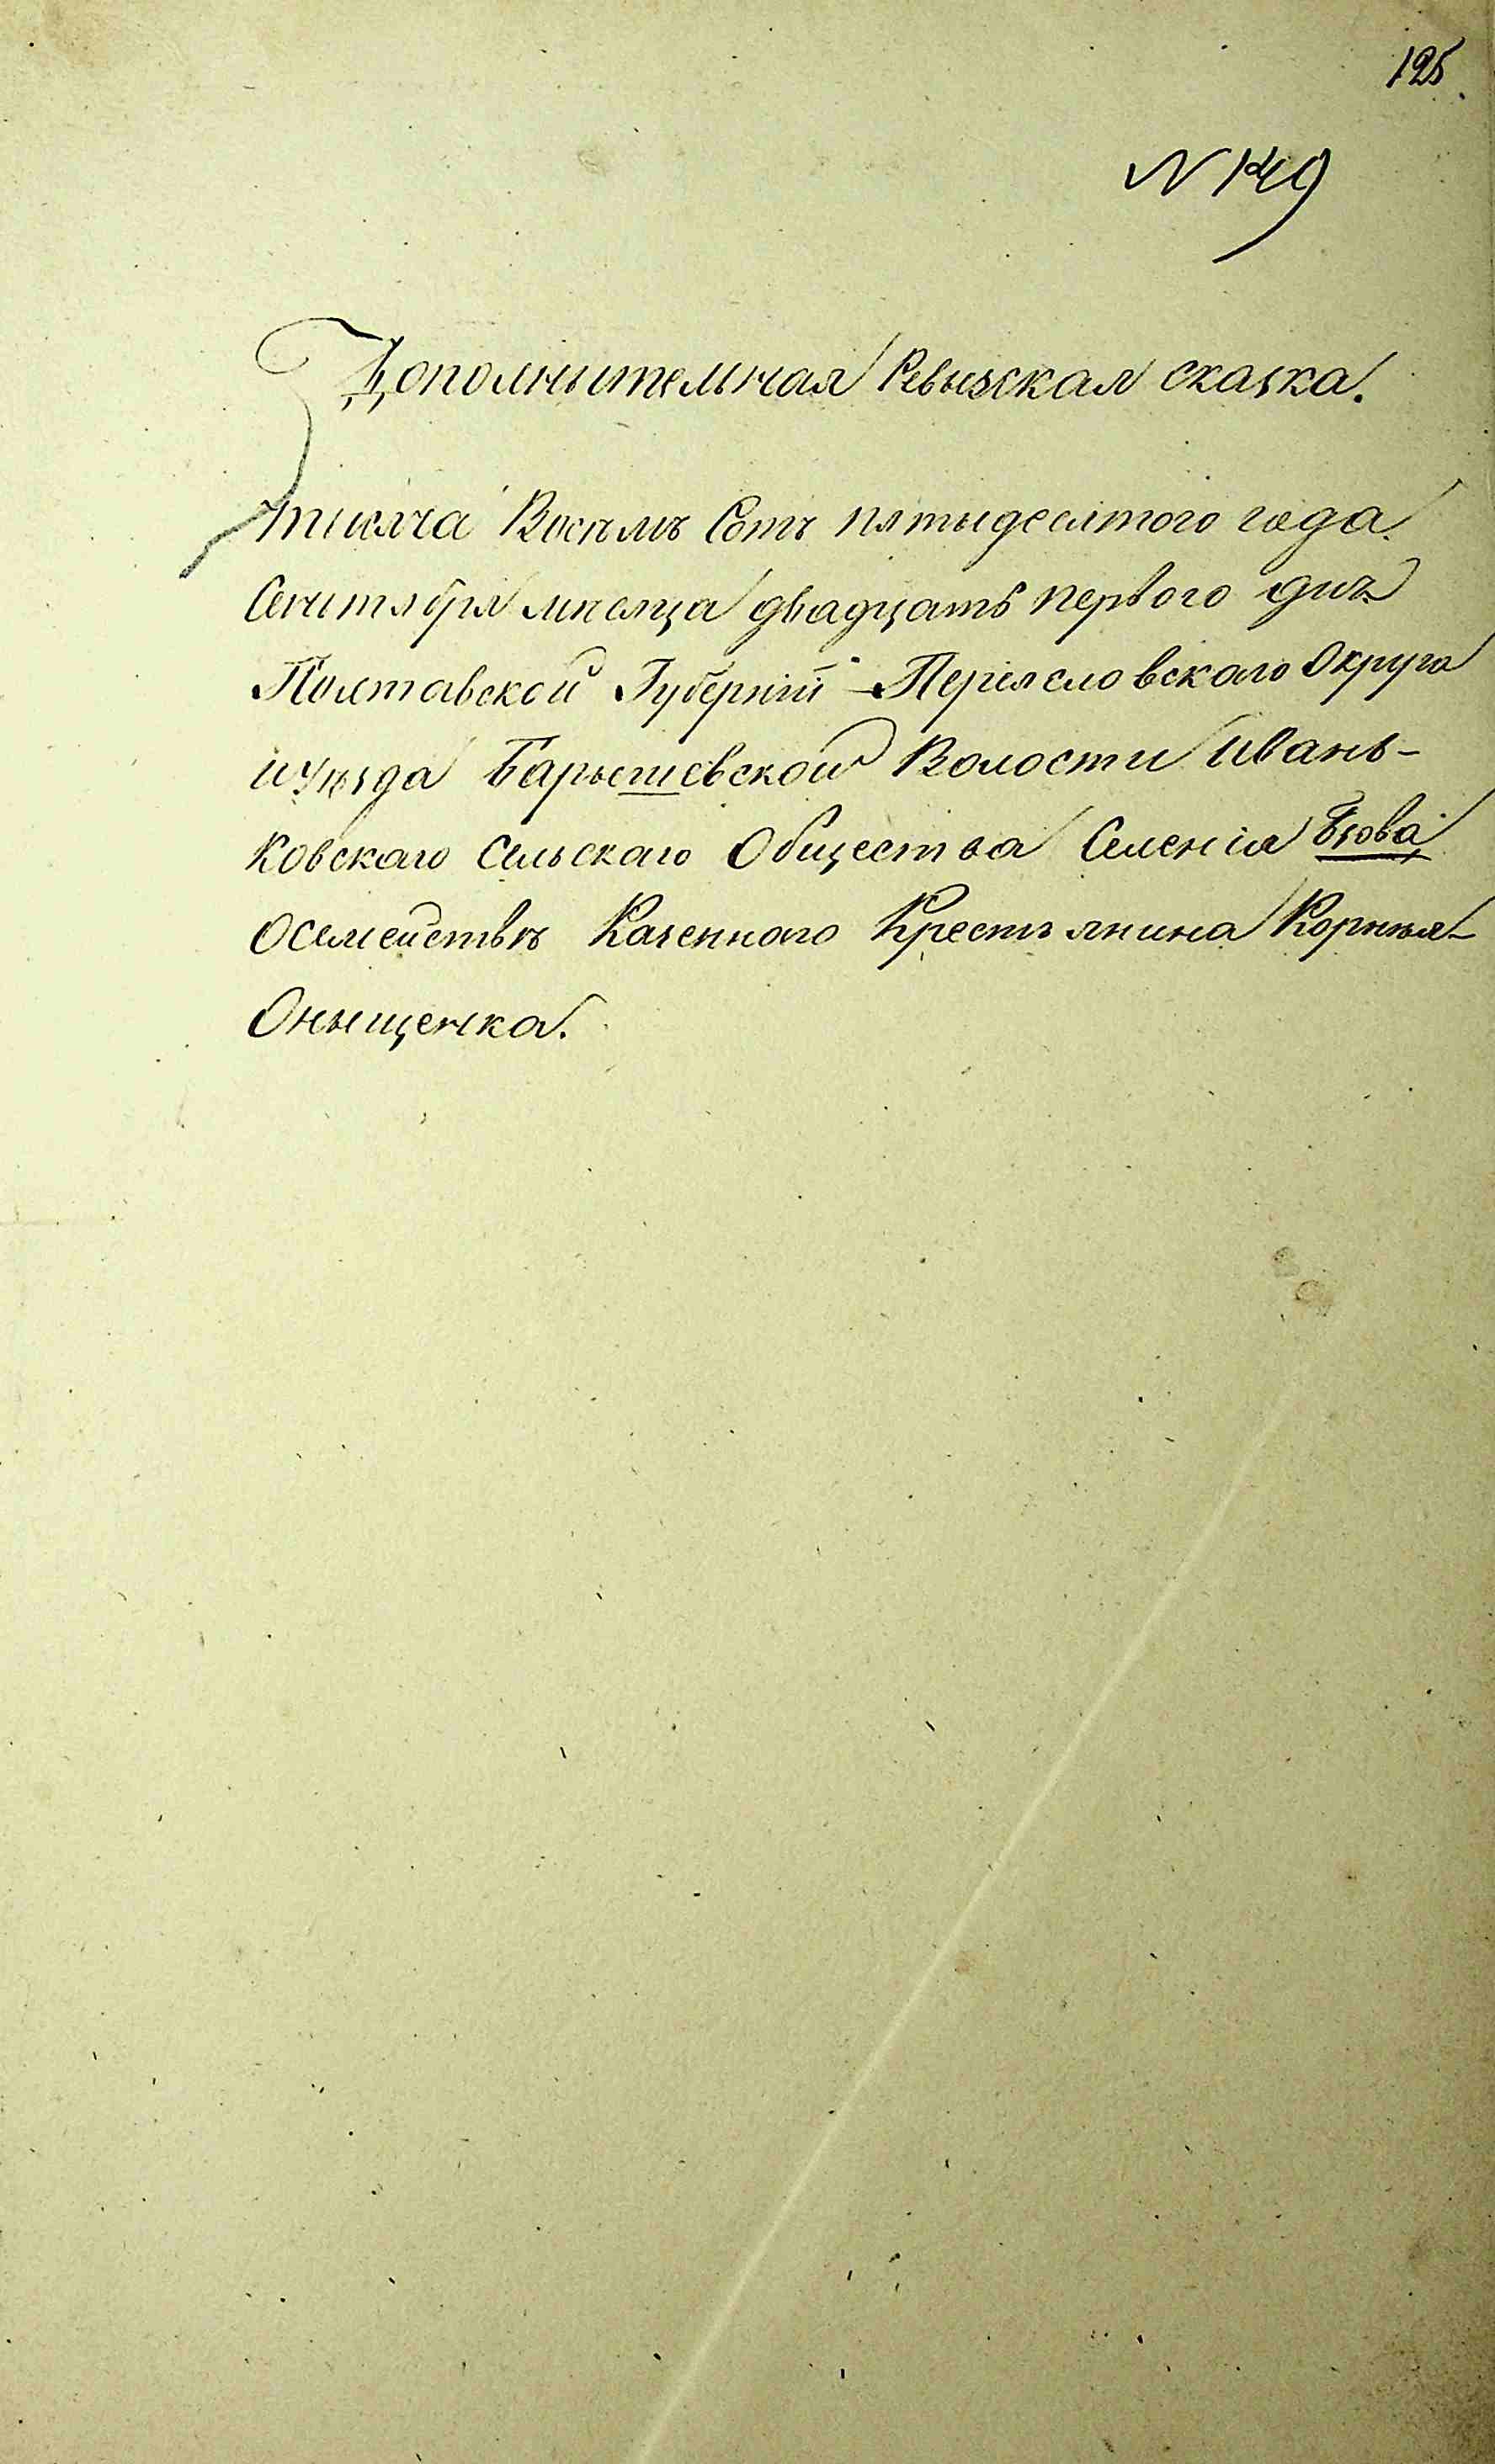 125.
N 149
Дополнителная Ревызская сказка.
тисяча Восемъ Сотъ пятыдесятого года
Сентября мѣсяца двадцать первого дня
Полтавской Губерніи Переясловскаго Округа
иуѣзда Барышевской Волости Ивань-
ковскаго Сельскаго Общества Селенія
Осемействѣ Казенного Крестъянина Корнѣя
Оныщенка.